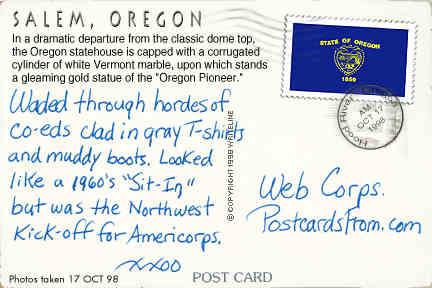 SALEM, OREGON
In a dramatic departure from the classic dome top,
the Oregon statehouse is capped with a corrugated
cylinder of white Vermont marble, upon which stands
a gleaming gold statue of the "Oregon Pioneer."
Waded through hordes of
co-eds clad in gray T-shirts
and muddy boots. Looked
like a 1960's "Sit-In"
but was the Northwest
Kick-off for Americorps.
xxoo
Photos taken 17 OCT 98
© COPYRIGHT 1998 WHITELINE
STATE OF OREGON
1859
Hood River
AM
OCT 17
1998
Web Corps.
PostcardsFrom.com
POST CARD